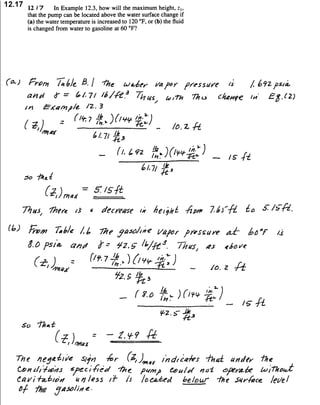 12.17
12.17 In Example 12.3, how will the maximum height, z₁,
that the pump can be located above the water surface change if
(a) the water temperature is increased to 120 °F, or (b) the fluid
is changed from water to gasoline at 60 °F?
(a) From Table B.1 the water vapor pressure is 1.692 psia
and γ = 61.71 lb/ft³. Thus, with this change in Eq.(2)
in Example 12.3
(z₁)max = (14.7 lb/in.²)(144 in.²/ft²) / 61.71 lb/ft³ - 10.2 ft
- (1.692 lb/in.²)(144 in.²/ft²) / 61.71 lb/ft³ - 15 ft
so that
(z₁)max = 5.15 ft
Thus, there is a decrease in height from 7.65 ft to 5.15 ft.
(b) From Table 1.6 the gasoline vapor pressure at 60°F is
8.0 psia and γ = 42.5 lb/ft³. Thus, as above
(z₁)max = (14.7 lb/in.²)(144 in.²/ft²) / 42.5 lb/ft³ - 10.2 ft
- (8.0 lb/in.²)(144 in.²/ft²) / 42.5 lb/ft³ - 15 ft
so that
(z₁)max = - 2.49 ft
The negative sign for (z₁)max indicates that under the
conditions specified the pump could not operate without
cavitation unless it is located below the surface level
of the gasoline.